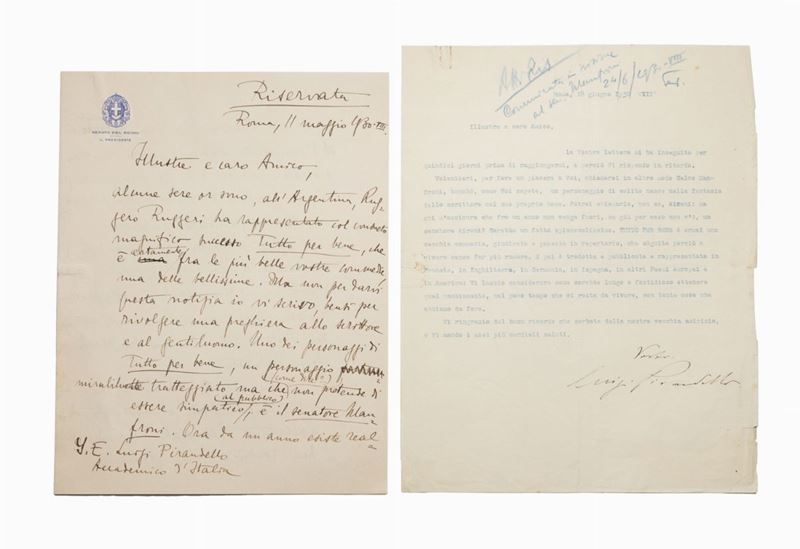 SENATO DEL REGNO
IL PRESIDENTE
Riservata
Roma, 11 maggio 1930-VIII.
Illustre e caro Amico,
alcune sere or sono, all'Argentina, Rug-
gero Ruggeri ha rappresentato col consueto
magnifico successo Tutto per bene, che
è certamente fra le più belle vostre commedie
una delle bellissime. Ma non per darvi
questa notizia io vi scrivo, bensì per
rivolgere una preghiera allo scrittore
e al gentiluomo. Uno dei personaggi di
Tutto per bene, un personaggio
mirabilmente tratteggiato ma che (come dire?) non pretende di
essere simpatico (al pubblico), è il senatore Man-
froni. Ora da un anno esiste real-
S. E. Luigi Pirandello
Accademico d'Italia
Comunicata in visione
al sen. Manfroni
24/6/930-VIII
Roma, 18 giugno 1930 VIII
Illustre e caro Amico,
la Vostra lettera mi ha inseguito per
quindici giorni prima di raggiungermi, e perciò Vi rispondo in ritardo.
Volentieri, per fare un piacere a Voi, chiamerei in altro modo Salvo Man-
froni, benchè, come Voi sapete, un personaggio di solito nasce nella fantasia
dello scrittore col suo proprio nome. Potrei chiamarlo, non so,
chi m'assicura che fra un anno non venga fuori, se già per caso non c'è, un
senatore TUTTO PER BENE è ormai una
vecchia commedia, giudicata e passata in repertorio, che seguita però a
vivere senza far più rumore. E poi è tradotta e pubblicata e rappresentata in
Francia, in Inghilterra, in Germania, in Ispagna, in altri Paesi europei e
in America: Vi lascio considerare come sarebbe lungo e fastidioso ottenere
quel mutamento, nel poco tempo che ci resta da vivere, con tante cose che
abbiamo da fare.
Vi ringrazio del buon ricordo che serbate della nostra vecchia amicizia,
e Vi mando i miei più cordiali saluti.
Vostro
Luigi Pirandello